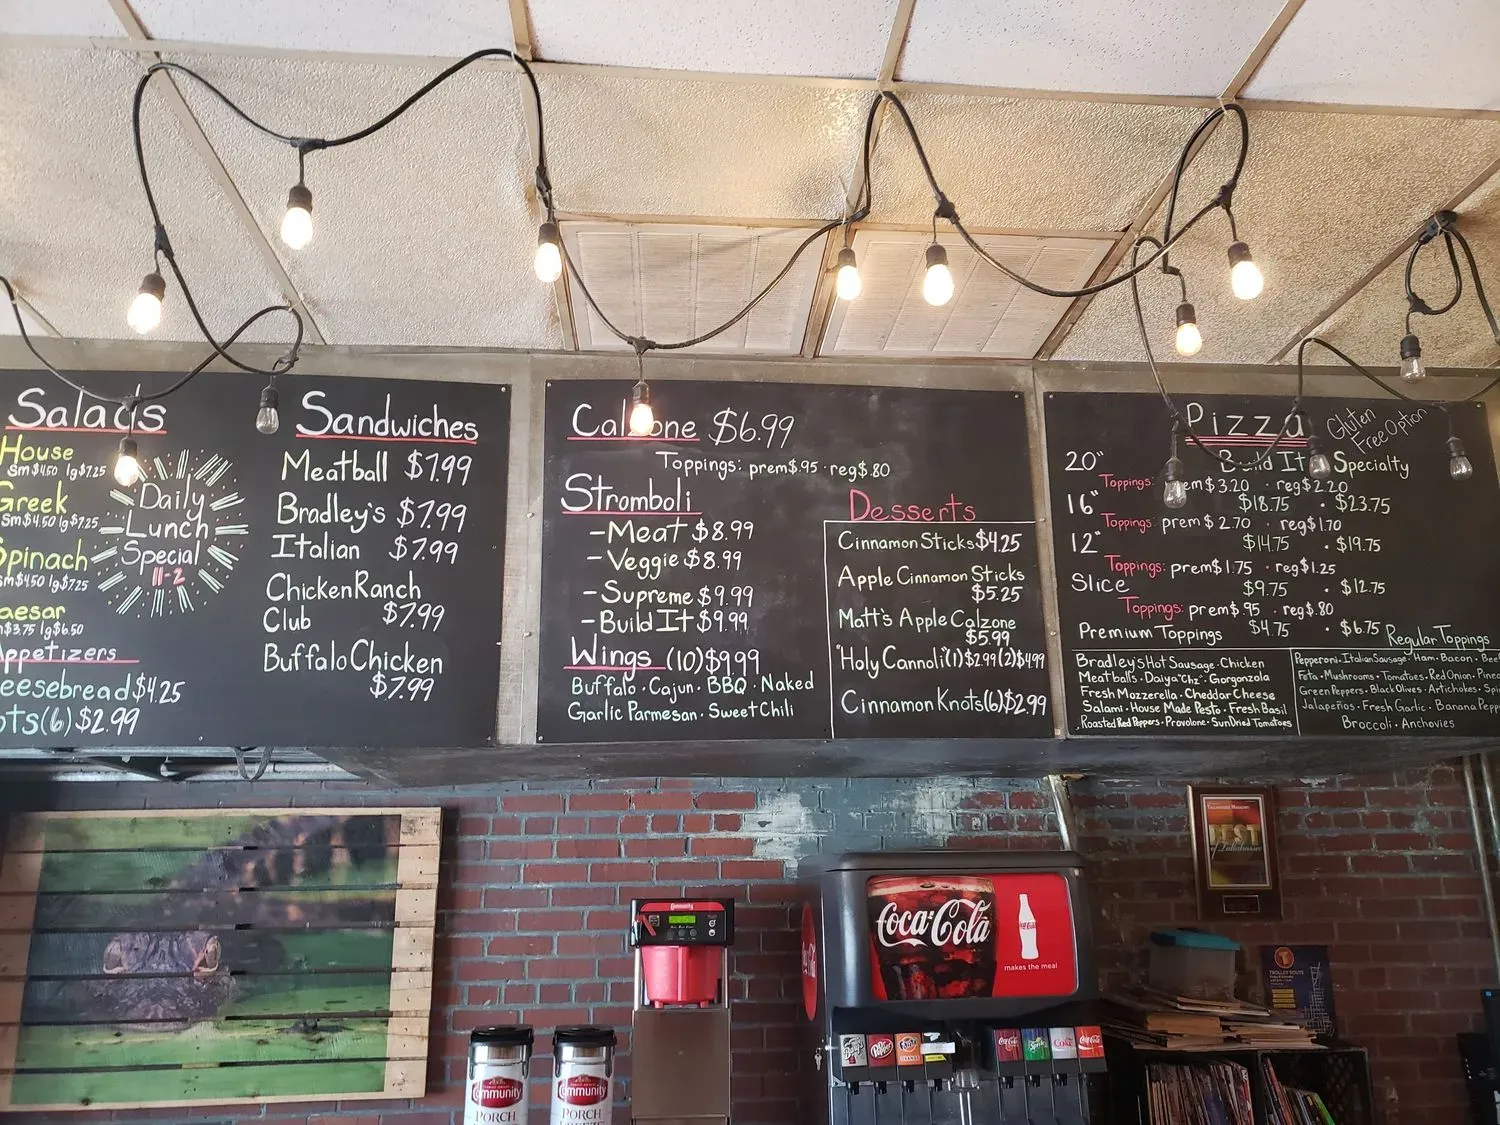 Salads
House
Sm $4.50 lg $7.25
Greek
Sm $4.50 lg $7.25
Spinach
Sm $4.50 lg $7.25
aesar
$3.75 lg $6.50
Appetizers
eesebread $4.25
ots (6) $2.99
Daily
Lunch
Special
11-2
Sandwiches
Meatball $7.99
Bradley's $7.99
Italian $7.99
Chicken Ranch
Club $7.99
Buffalo Chicken
$7.99
Calzone $6.99
Toppings: prem $.95 · reg $.80
Stromboli
- Meat $8.99
- Veggie $8.99
- Supreme $9.99
- Build It $9.99
Wings (10) $9.99
Buffalo · Cajun · BBQ · Naked
Garlic Parmesan · Sweet Chili
Desserts
Cinnamon Sticks $4.25
Apple Cinnamon Sticks
$5.25
Matt's Apple Calzone
$5.99
"Holy Cannoli" (1) $2.99 (2) $4.99
Cinnamon Knots (6) $2.99
Pizza
Gluten
Free Option
Build It Specialty
20"
Toppings: prem $3.20 · reg $2.20
$18.75 · $23.75
16"
Toppings: prem $2.70 · reg $1.70
$14.75 · $19.75
12"
Toppings: prem $1.75 · reg $1.25
$9.75 · $12.75
Slice
Toppings: prem $.95 · reg $.80
$4.75 · $6.75
Premium Toppings
Bradley's Hot Sausage · Chicken
Meatballs · Daiya "Chz" · Gorgonzola
Fresh Mozzerella · Cheddar Cheese
Salami · House Made Pesto · Fresh Basil
Roasted Red Peppers · Provolone · Sun Dried Tomatoes
Regular Toppings
Pepperoni · Italian Sausage · Ham · Bacon ·
Feta · Mushrooms · Tomatoes · Red Onion ·
Green Peppers · Black Olives · Artichokes ·
Jalapeños · Fresh Garlic · Banana
Broccoli · Anchovies
BEST
of Tallahassee
Community
Coca-Cola
makes the meal
TROLLEY ROUTE
Barq's
Dr Pepper
Fanta
Coca-Cola
Sprite
Coke
Coca-Cola
Community
PORCH
Community
PORCH